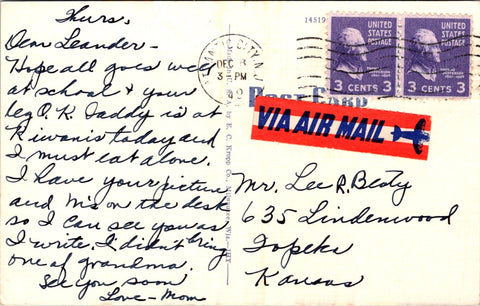 Thurs.
Dear Leander-
Hope all goes well
at school & your
leg O.K. Daddy is at
Kiwanis today and
I must eat alone.
I have your picture
and his on the desk
so I can see you as
I write. I didn't bring
one of grandma.
See you soon
Love-Mom
14519
ATLANTIC CITY, N.J.
DEC 3
3 PM
UNITED
STATES
POSTAGE
3 CENTS 3
UNITED
STATES
POSTAGE
3 CENTS 3
POST CARD
VIA AIR MAIL
by E. C. Kropp Co., Milwaukee, Wis.
Mr. Lee R. Beaty
635 Lindenwood
Topeka
Kansas